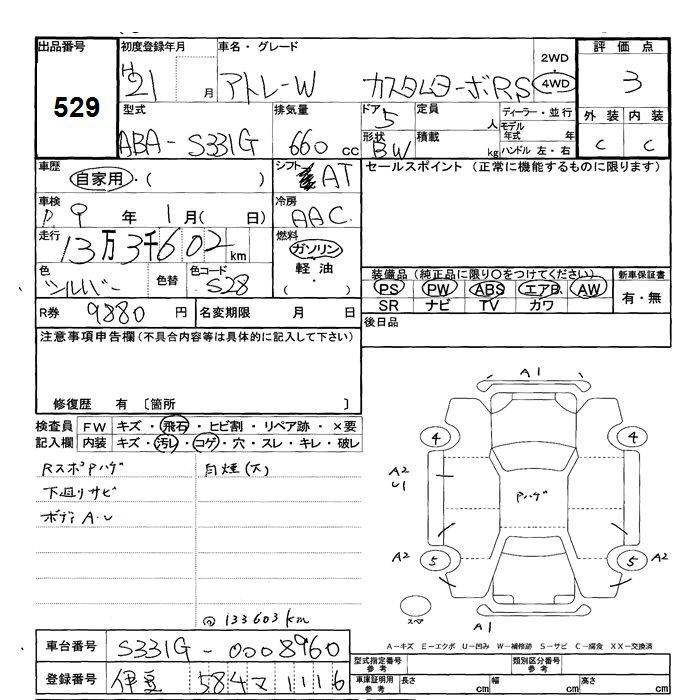 出品番号 529
初度登録年月 H21 月
車名・グレード アトレーW カスタムターボRS
2WD
4WD
評価点 3
外装 C 内装 C
型式 ABA-S331G
排気量 660 cc
ドア 5
形状 BW
定員 人
積載 kg
ディーラー・並行
モデル年式 年
ハンドル 左・右
車歴 自家用・( )
シフト AT
セールスポイント (正常に機能するものに限ります)
車検 9年 1月( 日)
冷房 AAC
走行 13万3千602km
燃料 ガソリン
軽油
( ・ )
色 シルバー 色替 色コード S28
装備品 (純正品に限り○をつけてください)
PS PW ABS エアB AW
SR ナビ TV カワ
新車保証書
有・無
R券 9880円 名変期限 月 日
後日品
注意事項申告欄(不具合内容等は具体的に記入して下さい)
修復歴 有 〔箇所 〕
検査員 FW キズ・飛石・ヒビ割・リペア跡・×要
記入欄 内装 キズ・汚レ・コゲ・穴・スレ・キレ・破レ
RスポPハゲ
下回リサビ
ボディA.U
白煙(大)
@133603km
A1
4 4
A2
U1
Pハゲ
A2 5 5 A2
スペア
A1
A-キズ E-エクボ U-凹み W-補修跡 S-サビ C-腐食 XX-交換済
車台番号 S331G-0008960
登録番号 伊豆 584マ1116
型式指定番号 参考
類別区分番号 参考
車庫証明用 参考 長さ cm 幅 cm 高さ cm